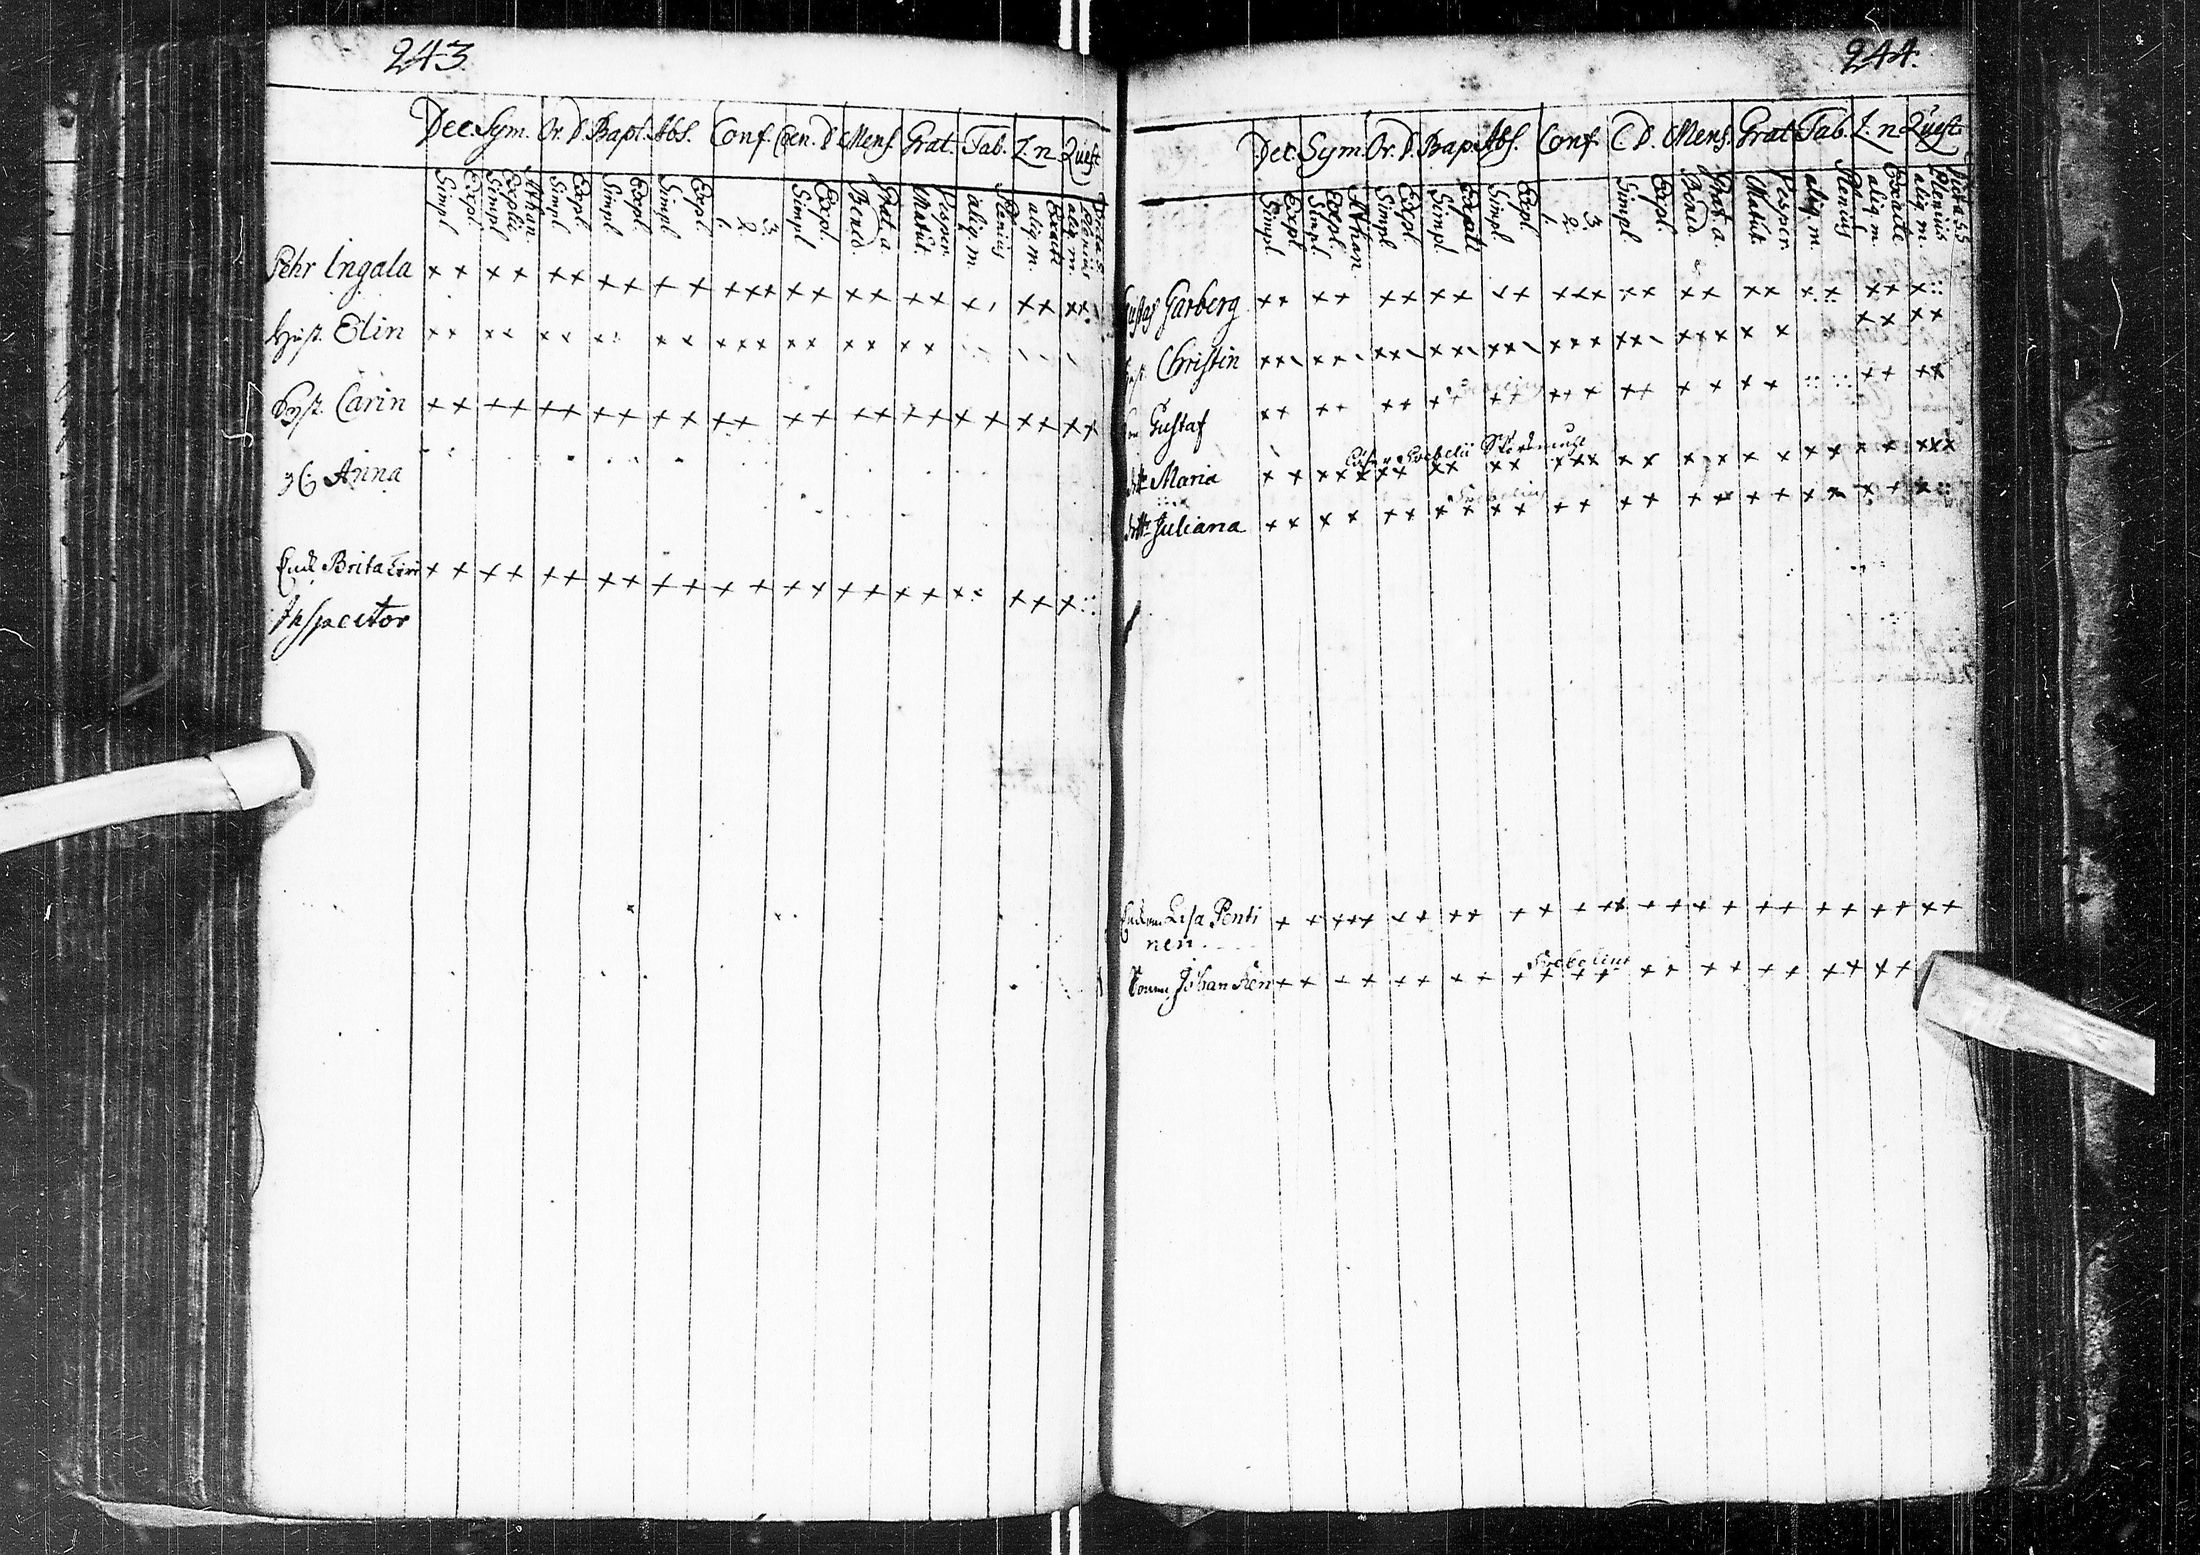 243.
Dec. Sym. Or. D. Bapt. Abs. Conf. Cœn. D. Mens. Grat. Tab. L. n. Quest.
Simpl Expl. Simpl Explic Athan. Simpl Expl. Simpl Expl. Simpl Expl. 1. 2. 3. Simpl Expl. Bened. Grat. a. Matut. Vesper. aliq. m. Plenius aliq. m. Exacte aliq. m. Plenius
Pehr Ingala
Hust. Elin
Syst. Carin
Anna
Enck. Brita
Inspector
244.
Dec. Sym. Or. D. Bap. Abs. Conf. C. D. Mens. Grat. Tab. L. n. Quest.
Simpl Expl. Simpl. Expl. Athan Simpl Expl. Simpl. Expl. Simpl. Expl. 1. 2. 3. Simpl Expl. Bened. Grat. a. Matut. Vesper. aliq. m. Plenius aliq. m. Exacte aliq. m. Plenius
Gustaf Garberg
Christin
Gustaf
Svebelii
Maria
Svebelius
Juliana
Lisa Penti
nen.
Svebelius
Johan